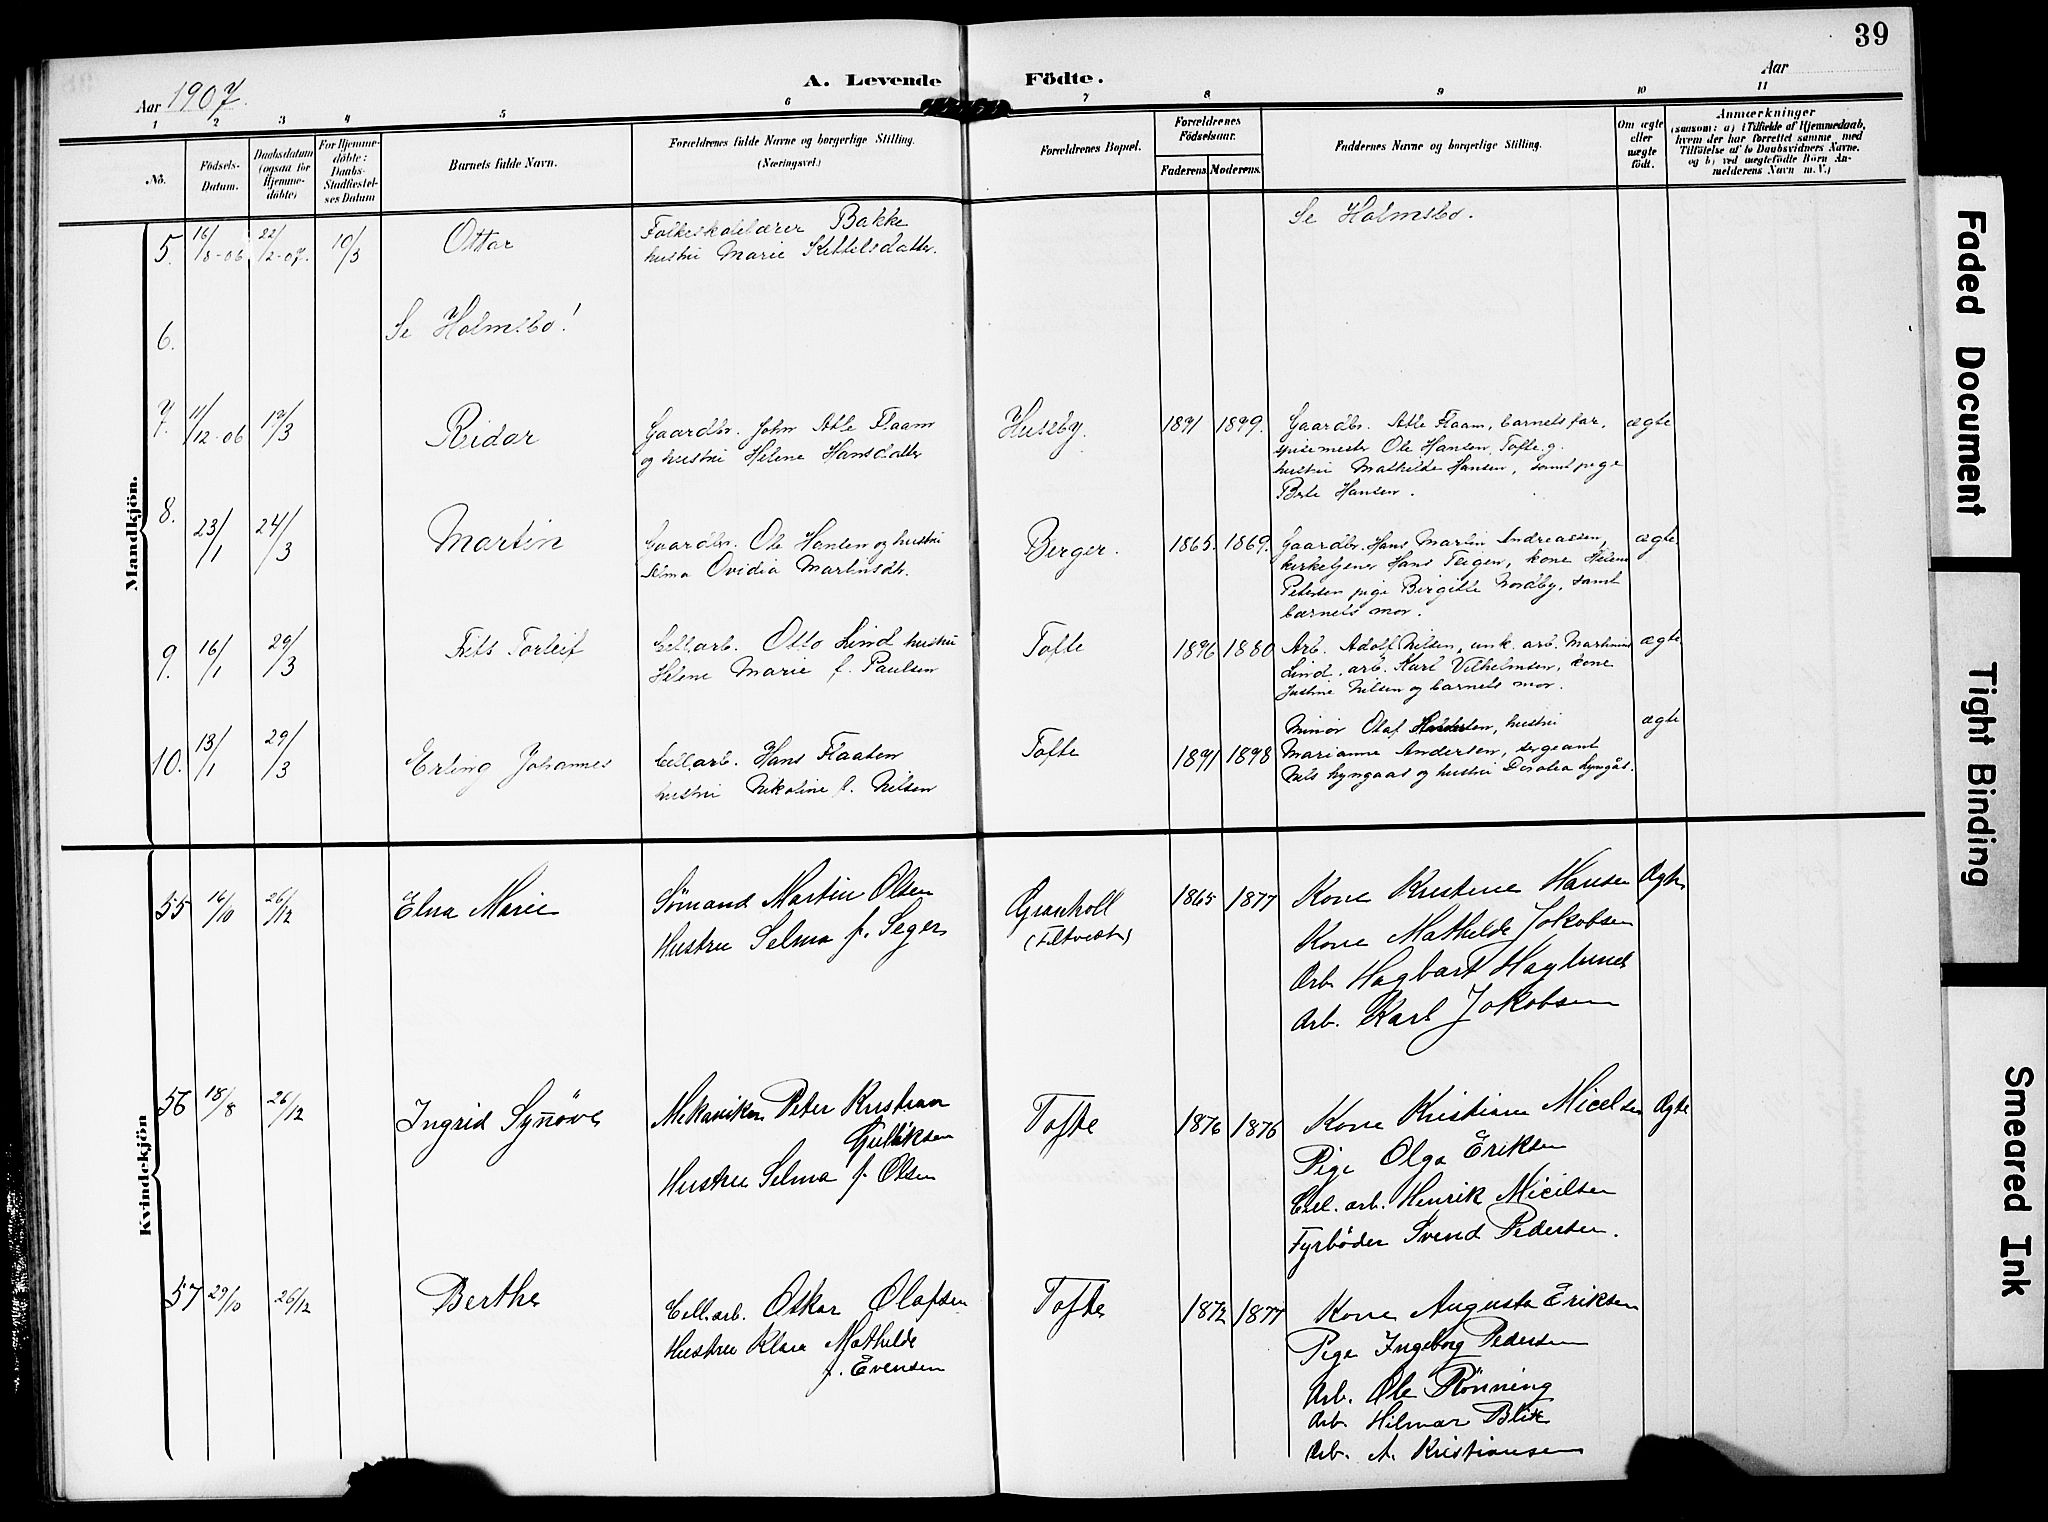 39
Aar 1907.
A. Levende Födte.
Aar
1 2 3 4 5 6 7 8 9 10 11
No.
Födsels-
Datum.
Daabsdatum
(ogsaa for
Hjemme-
döbte)
For Hjemme-
döbte:
Daabs-
Stadfæstel-
ses Datum
Barnets fulde Navn.
Forældrenes fulde Navne og borgerlige Stilling.
(Næringsvei.)
Forældrenes Bopæl.
Forældrenes
Födselsaar.
Faderens. Moderens.
Faddernes Navne og borgerlige Stilling.
Om ægte
eller
uægte
födt.
Anmærkninger
(saasom: a) i Tilfælde af Hjemmedaab,
hvem der har forrettet samme med
Tilföielse af to Daabsvidners Navne,
og b) ved uægtefödte Börn An-
melderens Navn m. V.)
Mandkjön.
5. 16/8-06 22/12-07. 10/3 Ottar
Folkeskolelærer Bakke
hustru Marie Kittelsdatter.
Se Holmsbo.
6. Se Holmsbo!
7. 11/12-06 17/3 Reidar
Gaardbr. John Atle Flaam
og hustru Helene Hansdatter
Huseby. 1891 1899.
Gaardbr. Atle Flaam, barnets far,
spisemester Ole Hansen, Tofte g.
hustru Mathilde Hansen, samt pige
Berte Hansen.
ægte
8. 23/1 24/3 Martin
Gaardbr. Ole Hansen og hustru
Selma Ovidia Martinsdt.
Berger. 1865. 1869.
Gaardbr. Hans Martin Andreassen,
kirketjener Hans Teigen, kone Helene
Petersen pige Birgitte Nordby, samt
barnets mor.
ægte
9. 16/1 29/3 Fits Torleif
Cell.arb. Otto Lind hustru
Helene Marie f. Paulsen
Tofte 1896 1880
Arb. Adolf Nilsen, unk. arb. Martinus
Lind, arb. Karl Vilhelmsen, kone
Justine Nilsen og barnets mor.
ægte
10. 13/1 29/3 Erling Johannes
Cell.arb. Hans Flaaten
hustru Nikoline f. Nilsen
Tofte 1891 1898
Minör Olaf Andersen, hustru
Marianne Andersen, sergeant
Nils Lyngaas og hustru Dorotea Lyngås.
ægte
Kvindekjön
55 16/10 26/12 Elna Marie
Sømand Martin Olsen
Hustru Selma f. Seger
Granholl
(Filtvedt)
1865 1877
Kone Kristine Hansen
Kone Mathilde Jokobsen
Arb. Hagbart Haglund
Arb. Karl Jokobsen
Ægte
56 18/8 26/12 Ingrid Synøve
Mekaniker Peter Kristian
Gulliksen
Hustru Selma f. Olsen
Tofte 1876 1876
Kone Kristiane Micelsen
Pige Olga Eriksen
Cel. arb. Henrik Micilsen
Fyrbøder Svend Pedersen.
Ægte
57 29/10 26/12 Berthe
Cell.arb. Oskar Olafsen
Hustru Klara Mathilde
f. Evensen
Tofte 1872 1877
Kone Augusta Eriksen
Pige Ingeborg Pedersen
Arb. Ole Rönning
Arb. Hilmar Blik
Arb. A. Kristiansen
Faded Document
Tight Binding
Smeared Ink